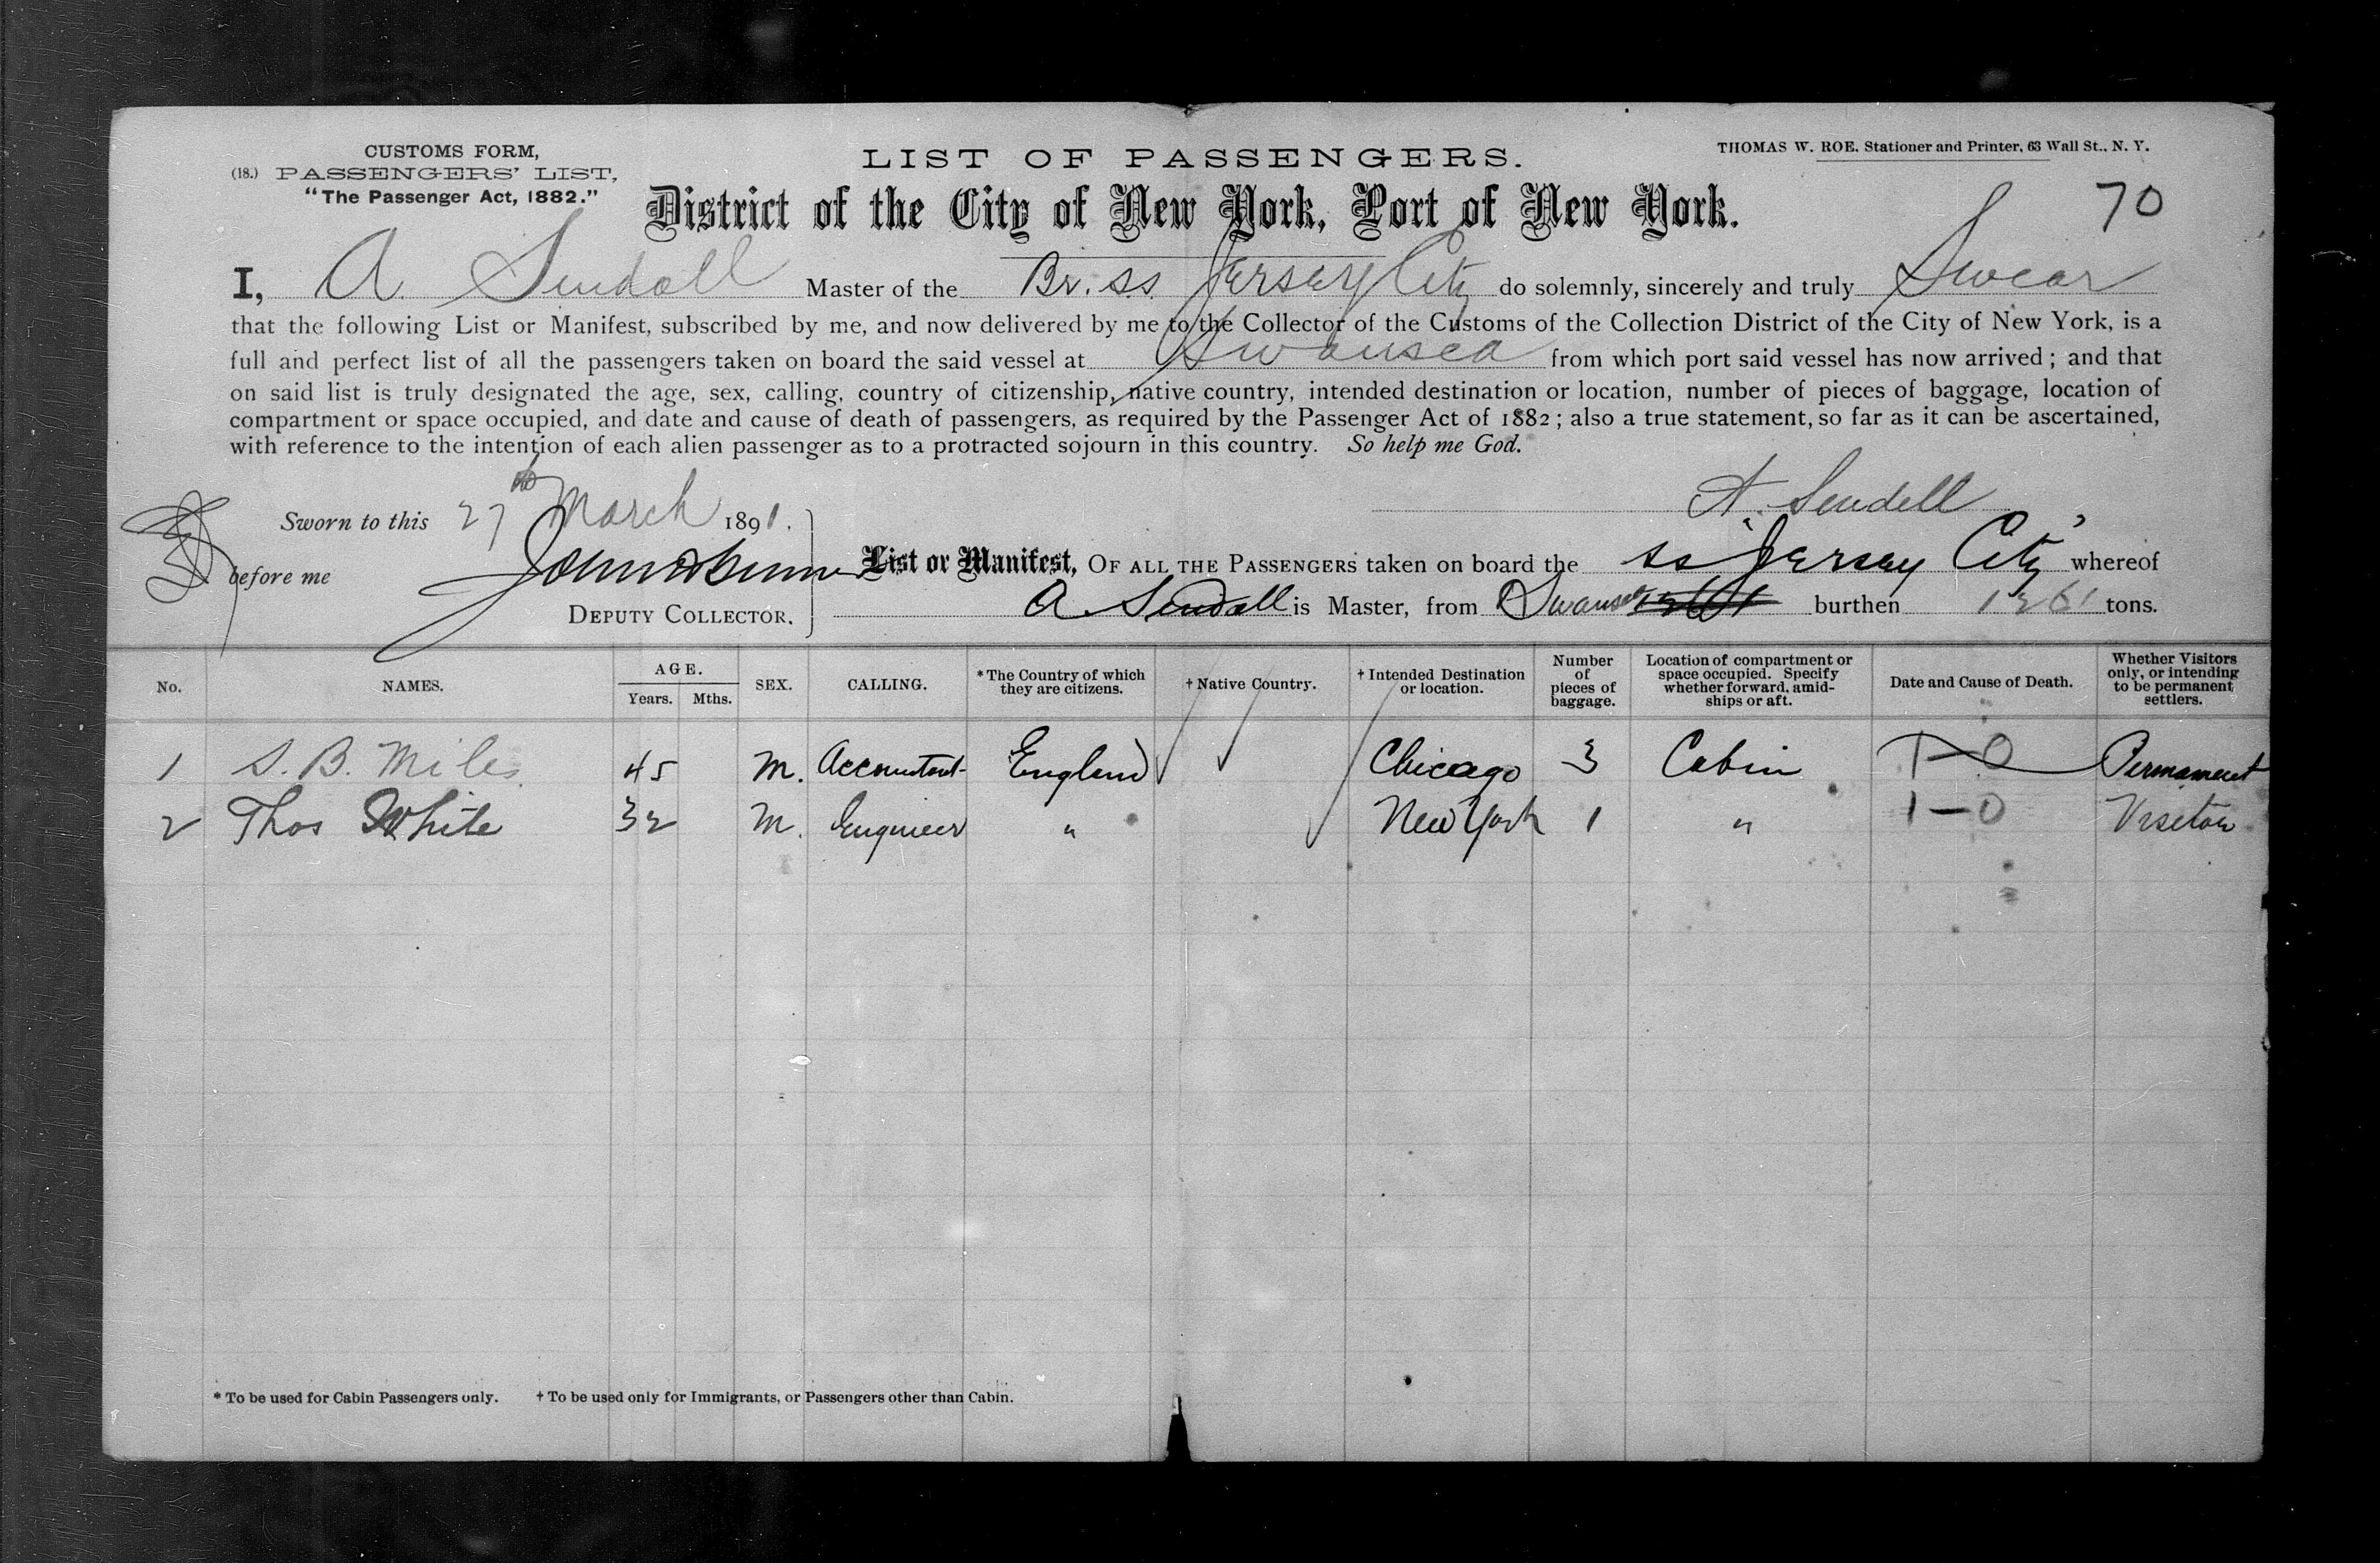 CUSTOMS FORM,
(18.) PASSENGERS' LIST,
"The Passenger Act, 1882."
LIST OF PASSENGERS.
THOMAS W. ROE. Stationer and Printer, 63 Wall St., N. Y.
District of the City of New York, Port of New York.
70
I, A. Sendall Master of the Br. ss Jersey City do solemnly, sincerely and truly Swear
that the following List or Manifest, subscribed by me, and now delivered by me to the Collector of the Customs of the Collection District of the City of New York, is a
full and perfect list of all the passengers taken on board the said vessel at Swansea from which port said vessel has now arrived; and that
on said list is truly designated the age, sex, calling, country of citizenship, native country, intended destination or location, number of pieces of baggage, location of
compartment or space occupied, and date and cause of death of passengers, as required by the Passenger Act of 1882; also a true statement, so far as it can be ascertained,
with reference to the intention of each alien passenger as to a protracted sojourn in this country. So help me God.
A. Sendell
Sworn to this 27th March 1891.
before me
DEPUTY COLLECTOR.
List or Manifest, OF ALL THE PASSENGERS taken on board the ss "Jersey City" whereof
A Sendall is Master, from Swansea burthen 1261 tons.
No. NAMES. AGE. Years. Mths. SEX. CALLING. *The Country of which they are citizens. †Native Country. †Intended Destination or location. Number of pieces of baggage. Location of compartment or space occupied. Specify whether forward, amidships or aft. Date and Cause of Death. Whether Visitors only, or intending to be permanent settlers.
1 S. B. Miles 45 M. Accountant England Chicago 3 Cabin 1-0 Permament
2 Thos White 32 M. Engineer " New York 1 " 1-0 Visitor
* To be used for Cabin Passengers only. † To be used only for Immigrants, or Passengers other than Cabin.